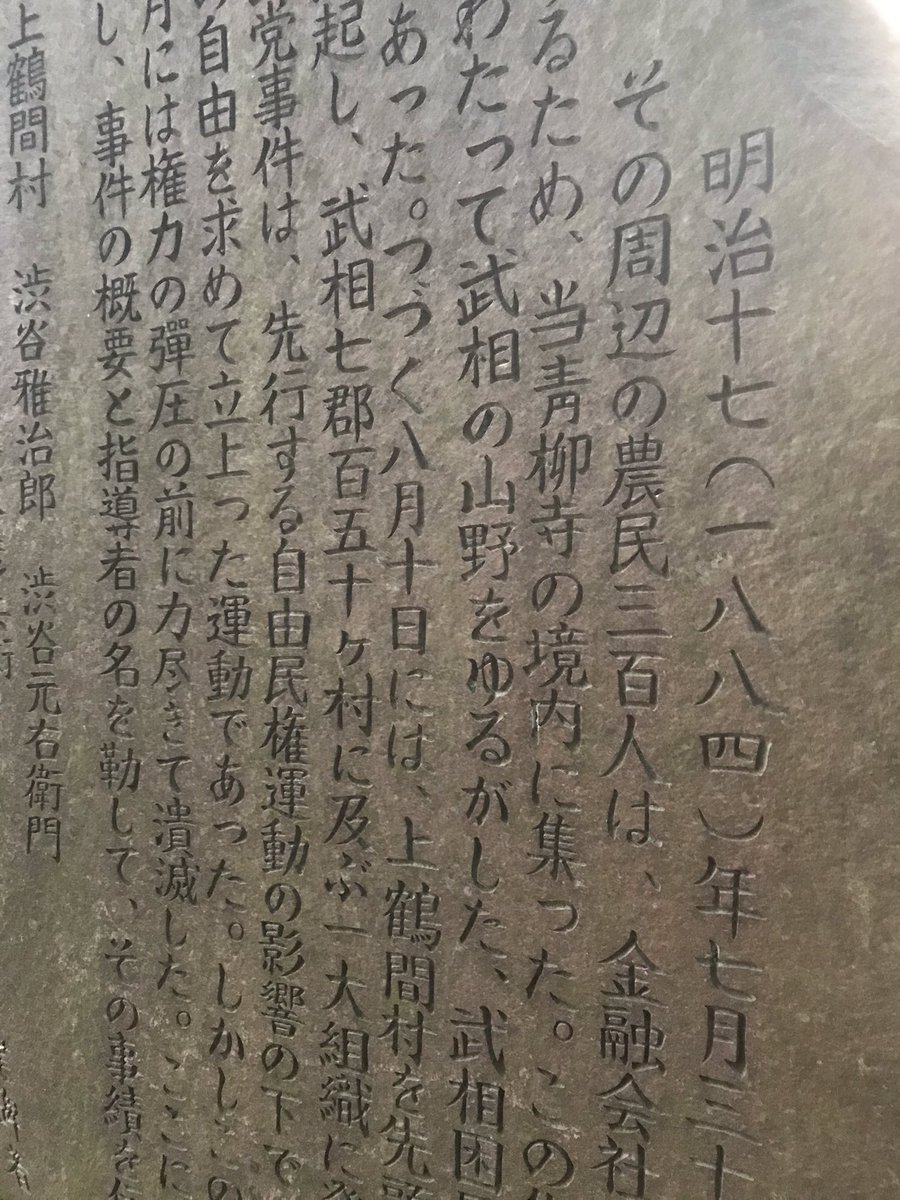 明治十七(一八八四)年七月三十
その周辺の農民三百人は、金融会社
るため、当青柳寺の境内に集った。この
わたって武相の山野をゆるがした、武相困民
あった。つづく八月十日には、上鶴間村を先頭
起し、武相七郡百五十ヶ村に及ぶ一大組織に発
党事件は、先行する自由民権運動の影響の下で
自由を求めて立上った運動であった。しかしこの
月には権力の彈圧の前に力尽きて潰滅した。ここに
し、事件の概要と指導者の名を勒して、その事績を
上鶴間村 渋谷雅治郎 渋谷元右衛門